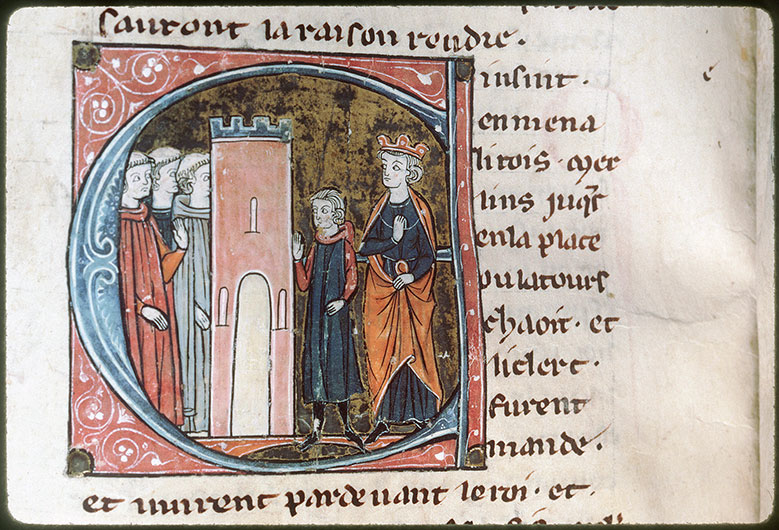 sauront la raison rendre.
insint.
enmena
li rois mer
lins juqr
en la place
ou la tours
chaoit. et
li clerc.
furent
mande.
et vinrent pardevant le roi. et.